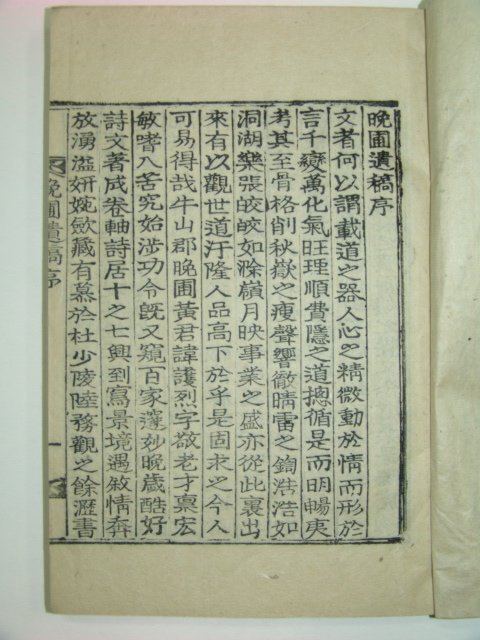 晩圃遺稿序
文者何以謂載道之器人心之精微動於情而形於
言千變萬化氣旺理順費隱之道摠循是而明暢夷
考其至骨格削秋嶽之瘦聲響徹晴雷之鍧浩浩如
洞湖樂張皎皎如滁嶺月映事業之盛亦從此裏出
來有以觀世道汙隆人品高下於乎是固求之今人
可易得哉牛山郡晩圃黃君諱護烈字敬老才禀宏
敏嗜八苦究始涉功令旣又窺百家邃妙晩歲酷好
詩文著成卷軸詩居十之七興到寫景境遇敘情奔
放湧溢姸婉斂藏有慕於杜少陵陸務觀之餘瀝書
晩圃遺稿序
一